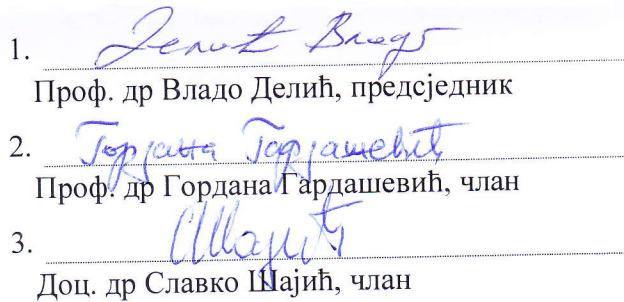 1. Делић Владо
Проф. др Владо Делић, предсједник
2. Гордана Гардашевић
Проф. др Гордана Гардашевић, члан
3. СШајић
Доц. др Славко Шајић, члан